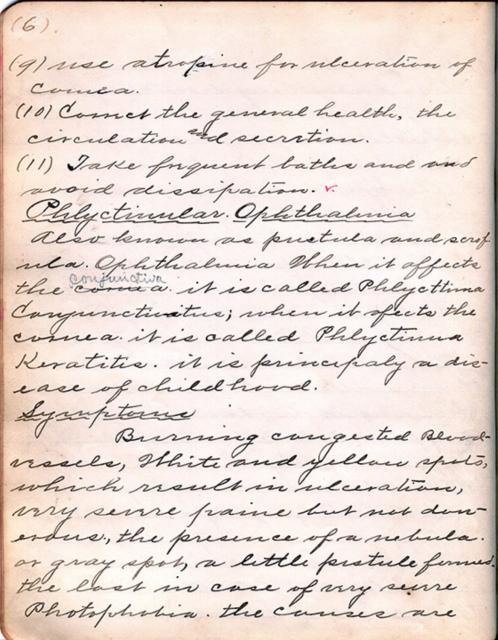 (6)
(9) use atropine for ulceration of
cornea.
(10) Correct the general health, the
circulation and secretion.
(11) Take frequent baths and and
avoid dissipation.
Phlyctinular. Ophthalmia
Also known as pustula and scrof
ula. Ophthalmia When it affects
the conjunctiva it is called Phlycttima
Conjunctivatus; when it afects the
cornea. it is called Phlyctinua
Keratitis. it is principaly a dis-
ease of childhood.
Symptoms
Burning congested Blood-
vessels, White and yellow spots,
which result in ulceration,
very severe paine but not dan-
erous, the presence of a nebula.
or gray spot, a little pustule formed.
the last in case of very severe
Photophobia. the causes are